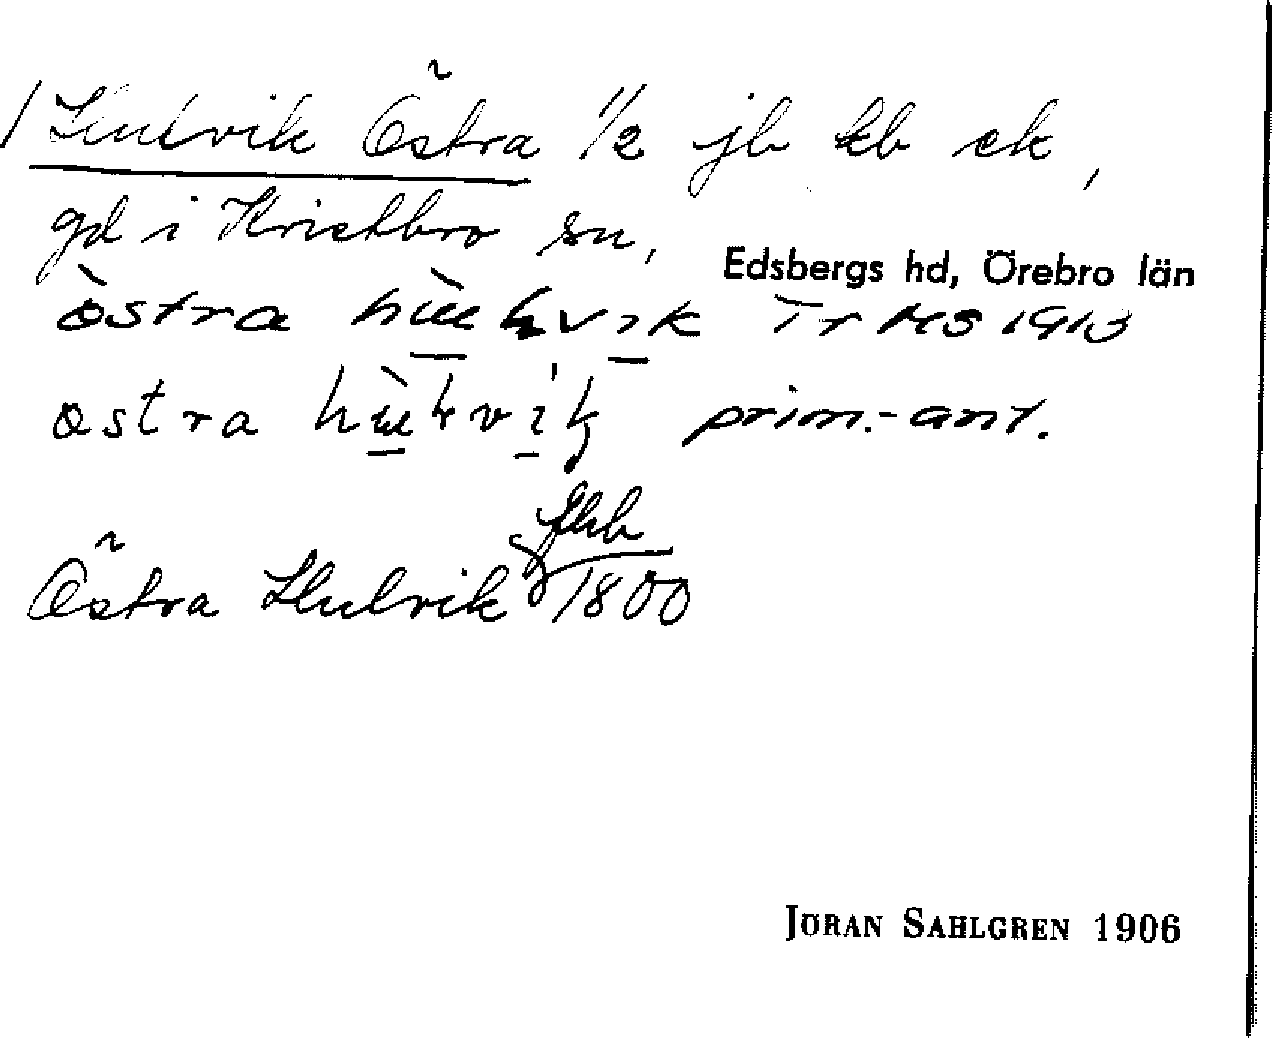 Hulvik Östra 1/2 jb kb ek,
gd i Kvistbro sn,
Edsbergs hd, Örebro län
östra Tr MS 1913
östra prim.-ant.
Östra Hulvik 1800
JÖRAN SAHLGREN 1906